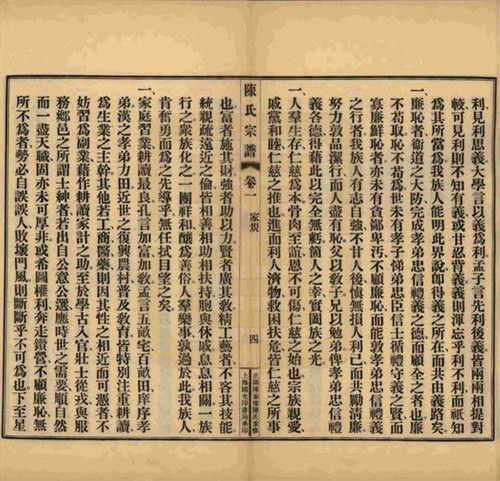 利見思義大學言以義爲利孟子言先利後義皆兩兩相提對
較可見利則不知有義或甘背義義則渾忘乎利不利而祇知
爲其所當爲我族人能明此界說卽得義之所在而共由義路矣
一、廉恥者衞道之大防完成孝弟忠信禮義之德而顧全之者也廉
不苟取恥不苟爲世未有孝子悌弟忠臣信士循禮守義之賢而
寡廉鮮恥者亦未有貪鄙卑汚不顧廉恥而能敦孝弟忠信禮義
之行者我族人有志自强不甘人後愼無損人利己而共勵清廉
努力敦品潔行而人盡有恥父以敎子兄以勉弟俾孝弟忠信禮
義各德得藉此以完全無虧箇人之幸國族之光
一、人羣生存仁慈爲本骨肉至誼恩不可傷仁慈之始也宗族親愛
戚黨和睦仁慈之推也進而利人濟物救困扶危皆仁慈之所事
陳氏宗譜 卷一 家規 四
上海國光印書局承印
也富者施其財强者助以力賢者廣其敎精工藝者不吝其技能
統親疏遠近之倫皆相善相助相扶持胞與休戚息息相關一族
行之衆族化之一團祥和釀爲善俗人羣樂事孰過於此我族人
肯奮勇而爲之先導乎無任拭目望之矣
一、家庭習業耕讀最良孔言加富加敎孟言五畝宅百畝田庠序孝
弟漢之孝弟力田近世之復興農村普及敎育皆特別注重耕讀
爲生業之主幹其他若工商醫藥則因其性之相近而可憑者不
妨習爲副業藉作耕讀家計之助至於學古入官壯士從戎與服
務鄕邑之所謂士紳者若出自公意公選應時世之需要順自然
而一盡天職固亦未可厚非或希圖權利奔走鑽營不顧廉恥無
所不爲者勢必自誤誤人敗壞門風則斷斷乎不可爲也下至星